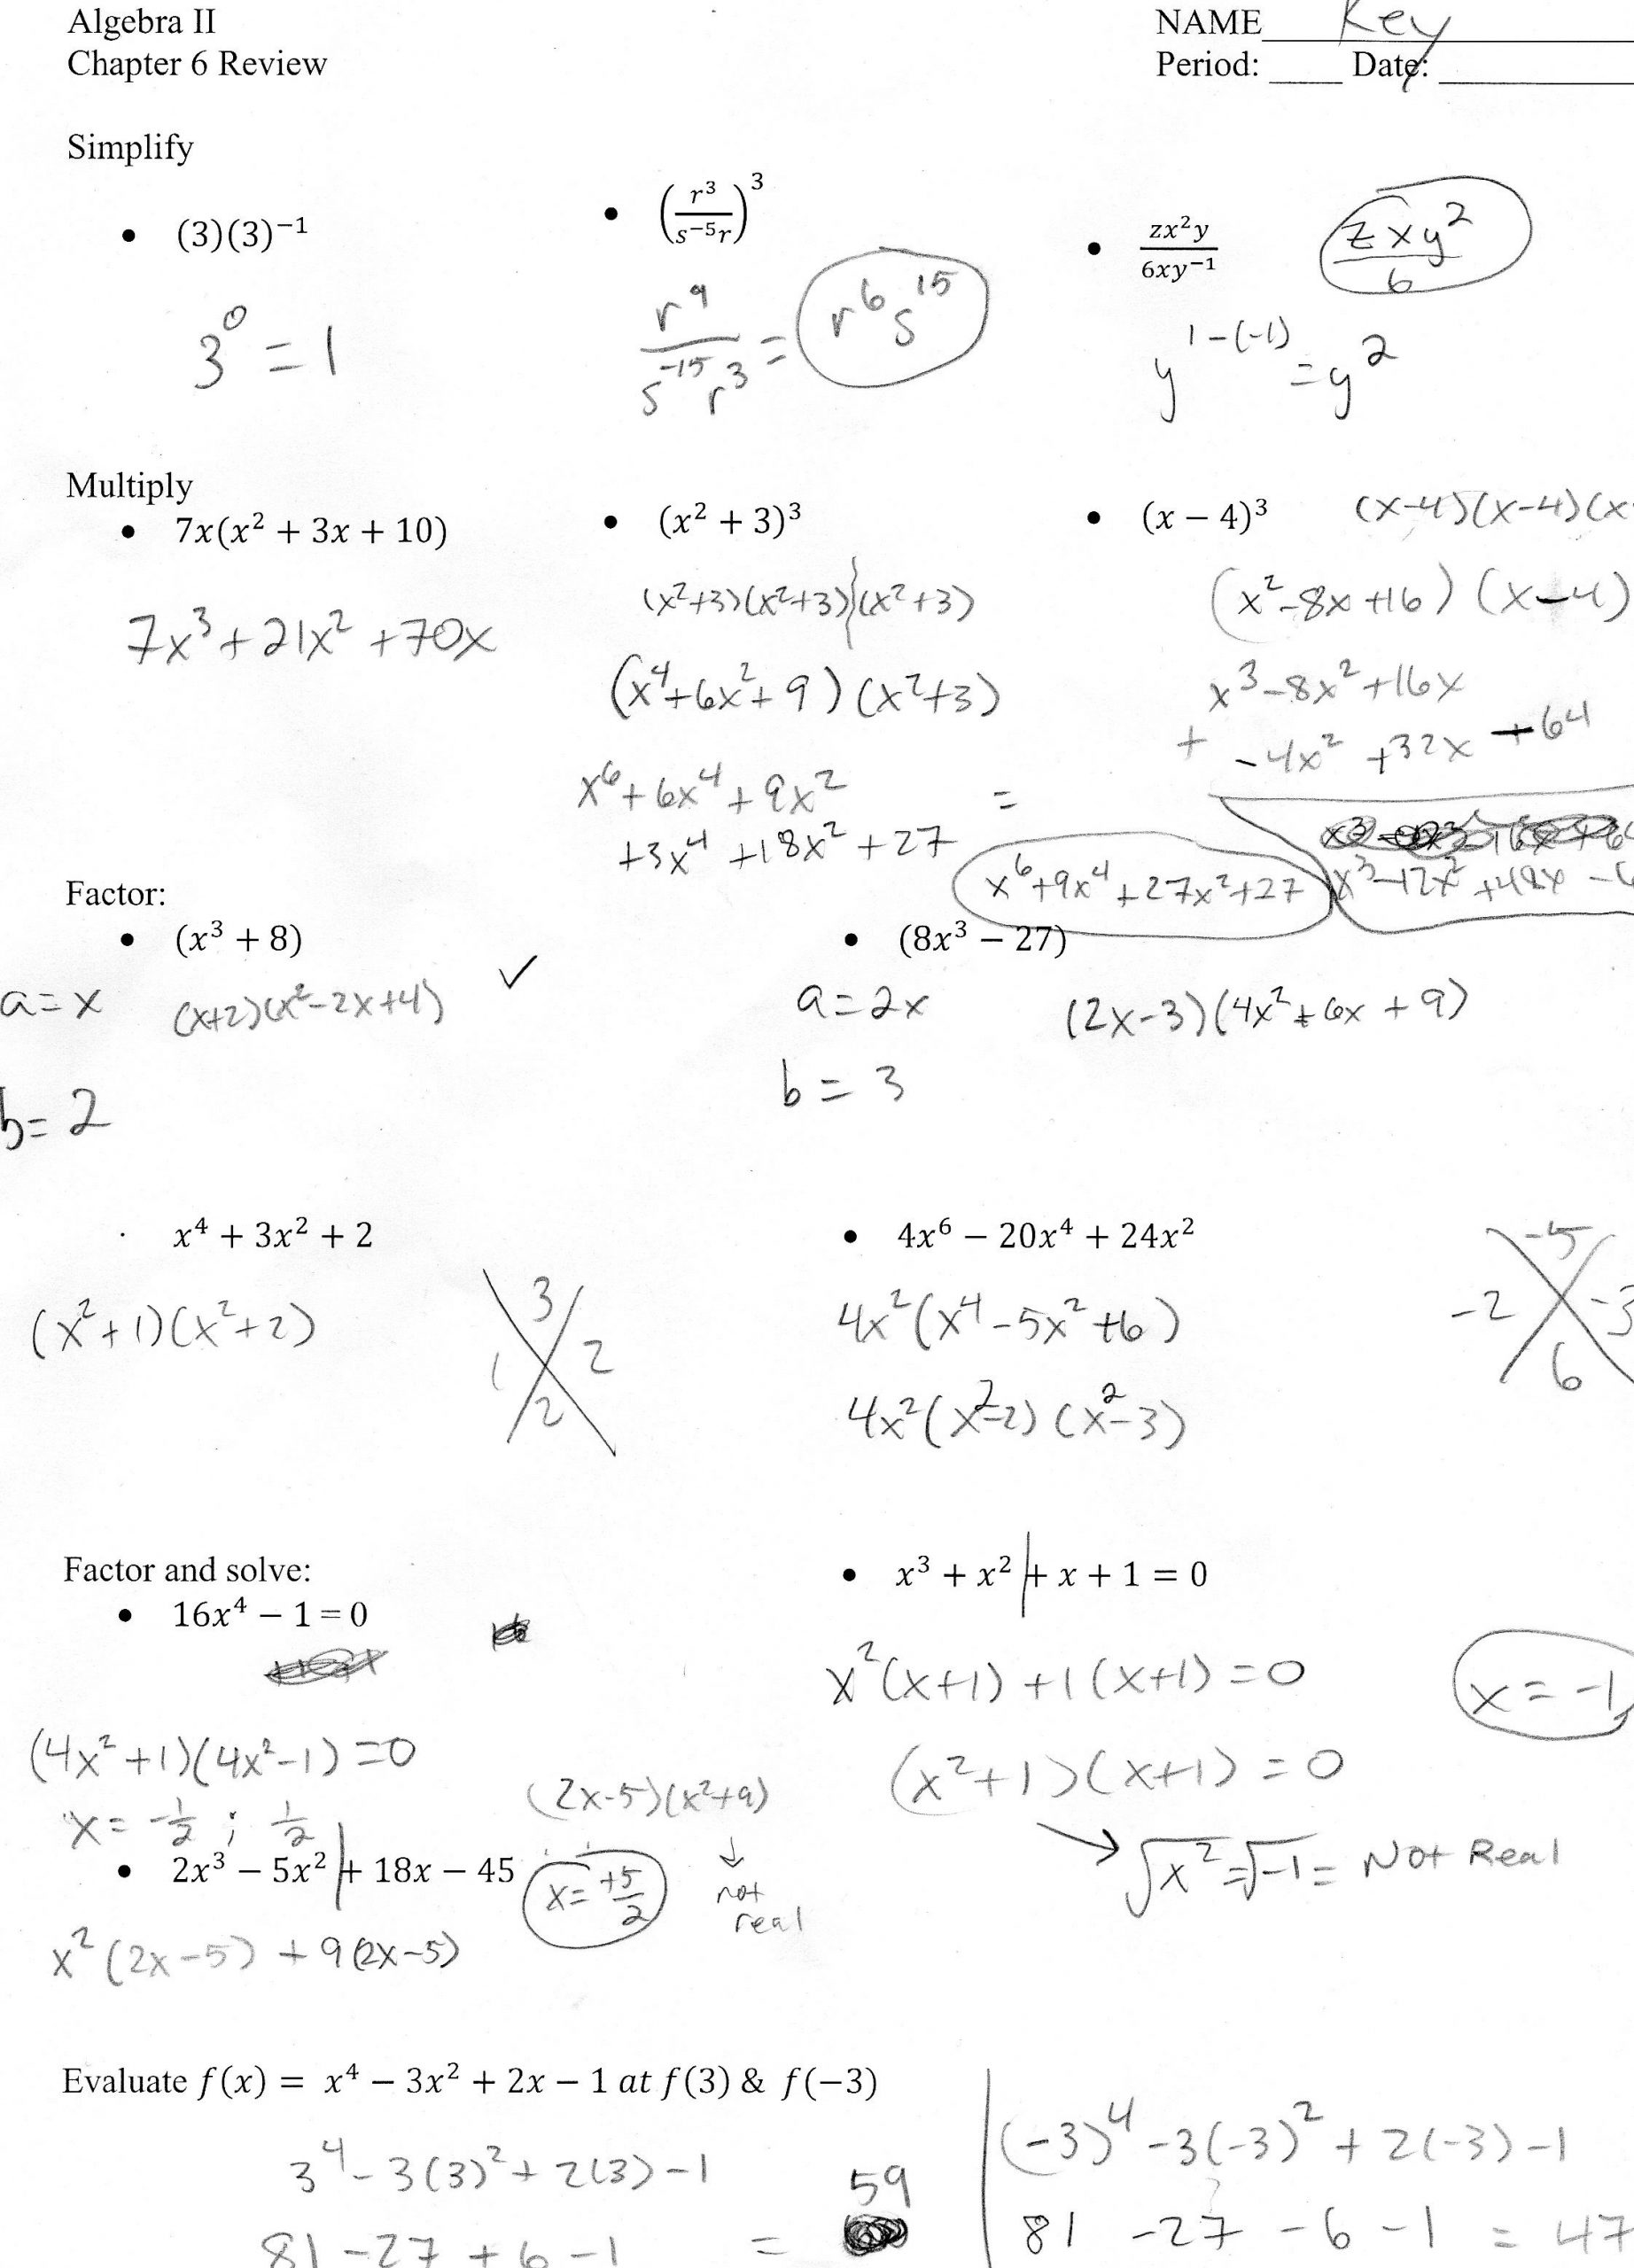 Algebra II
NAME Key
Chapter 6 Review
Period: ____ Date: ____
Simplify
• (3)(3)⁻¹
3⁰ = 1
• (r³/(s⁻⁵r))³
r⁹/(s⁻¹⁵r³) = r⁶s¹⁵
• zx²y/(6xy⁻¹)
zxy²/6
y¹⁻⁽⁻¹⁾ = y²
Multiply
• 7x(x² + 3x + 10)
7x³ + 21x² + 70x
• (x² + 3)³
(x²+3)(x²+3)(x²+3)
(x⁴+6x²+9)(x²+3)
x⁶+6x⁴+9x²
+3x⁴+18x²+27
=
x⁶+9x⁴+27x²+27
• (x − 4)³
(x-4)(x-4)(x-
(x²-8x+16)(x-4)
x³-8x²+16x
+ -4x²+32x+64
x³-12x²+48x-6
Factor:
• (x³ + 8)
a=x (x+2)(x²-2x+4) ✓
b=2
• (8x³ − 27)
a=2x (2x-3)(4x²+6x+9)
b=3
· x⁴ + 3x² + 2
(x²+1)(x²+2)
3
1 2
2
• 4x⁶ − 20x⁴ + 24x²
4x²(x⁴-5x²+6)
4x²(x²-2)(x²-3)
-5
-2 -3
6
Factor and solve:
• 16x⁴ − 1 = 0
(4x²+1)(4x²-1)=0
x = -1/2 ; 1/2
• x³ + x² + x + 1 = 0
x²(x+1)+1(x+1)=0
x=-1
(x²+1)(x+1)=0
→ √x² = √-1 = Not Real
• 2x³ − 5x² + 18x − 45
x²(2x-5)+9(2x-5)
(2x-5)(x²+9)
x=+5/2
↓
not
real
Evaluate f(x) = x⁴ − 3x² + 2x − 1 at f(3) & f(−3)
3⁴-3(3)²+2(3)-1
81-27+6-1 = 59
(-3)⁴-3(-3)²+2(-3)-1
81-27-6-1=47